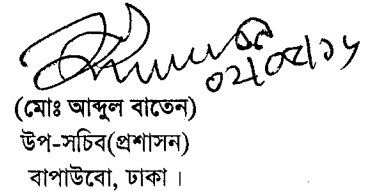 ০২/০৫/১৮
(মোঃ আব্দুল বাতেন)
উপ-সচিব(প্রশাসন)
বাপাউবো, ঢাকা ।